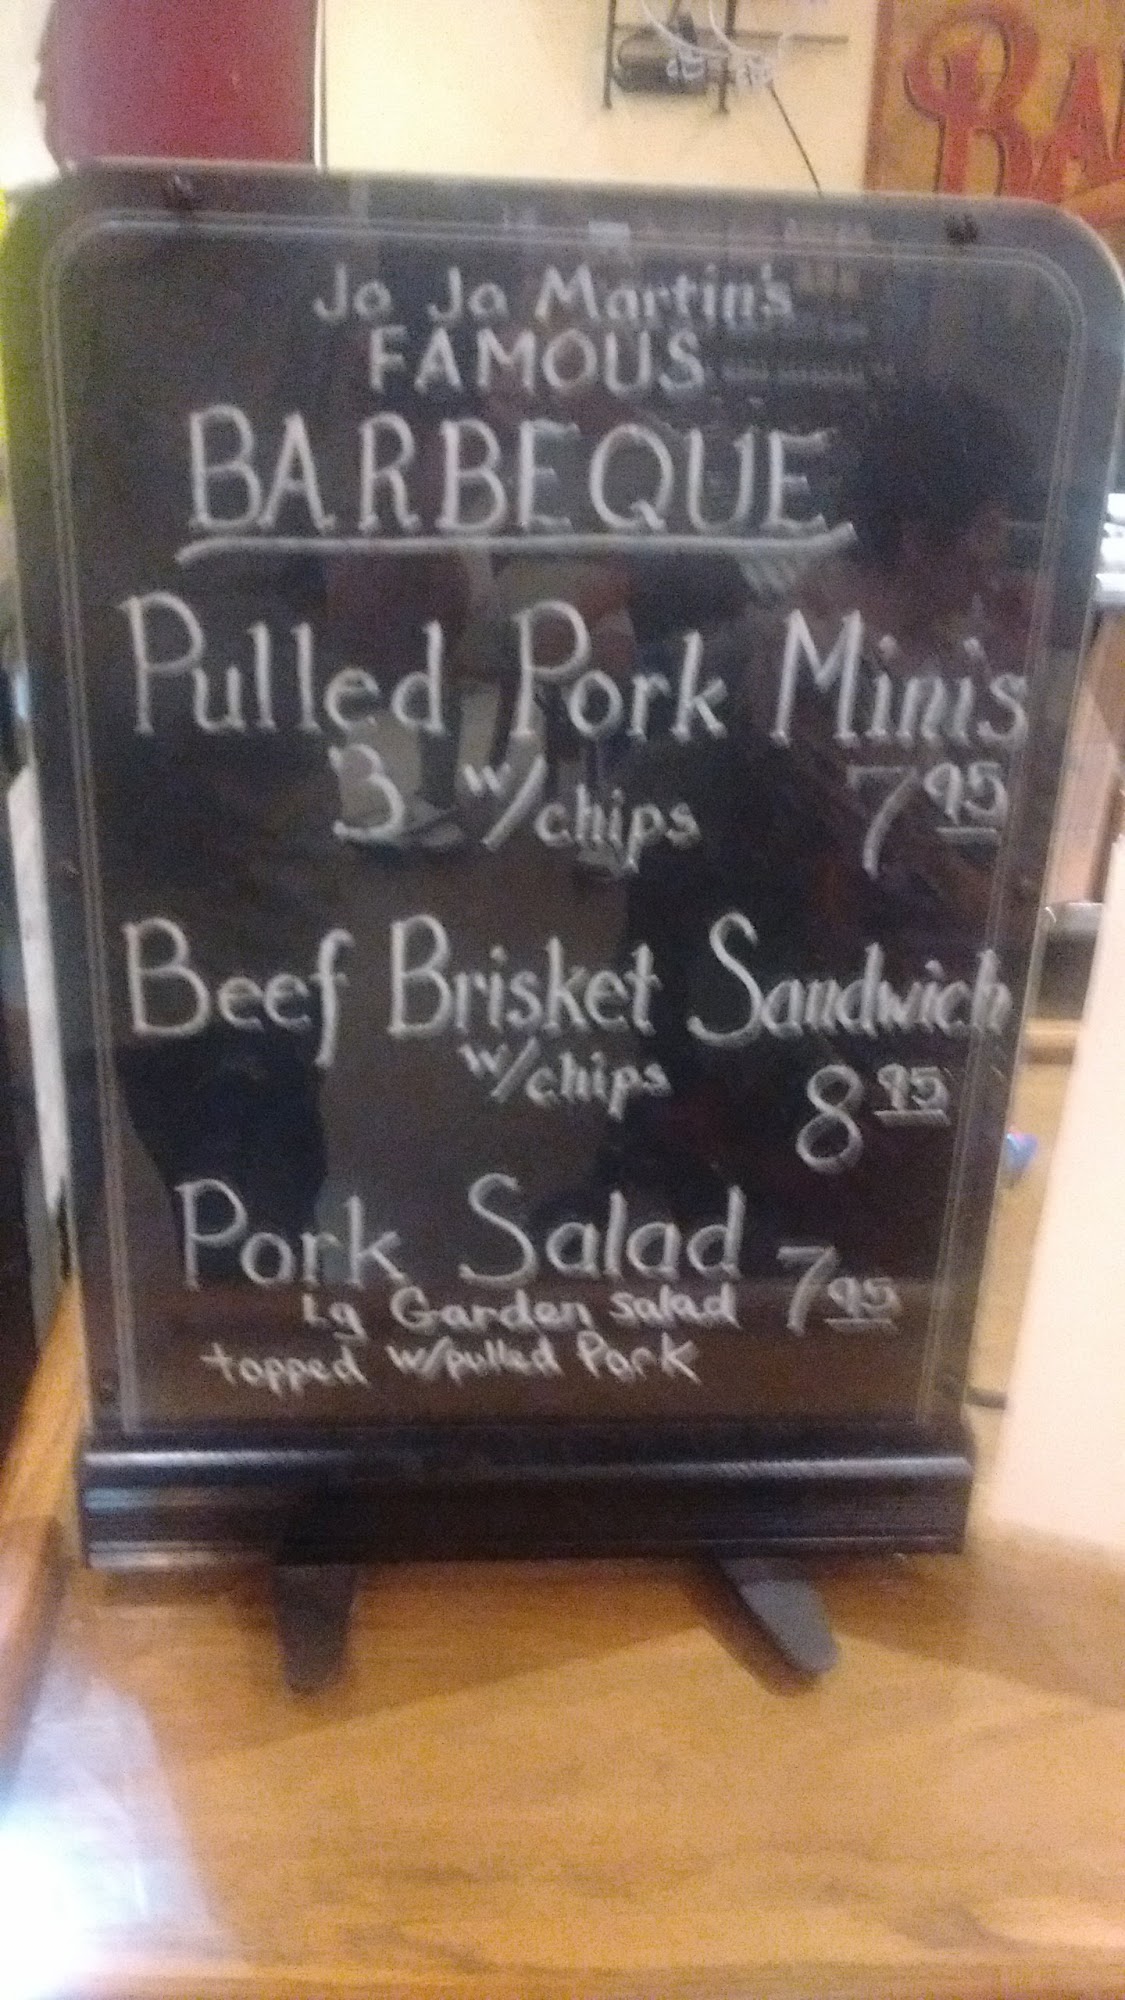 Jo Jo Martin's
FAMOUS
BARBEQUE
Pulled Pork Minis
3 w/chips 7 95
Beef Brisket Sandwich
w/chips 8 95
Pork Salad 7 95
Lg Garden salad
topped w/pulled Pork